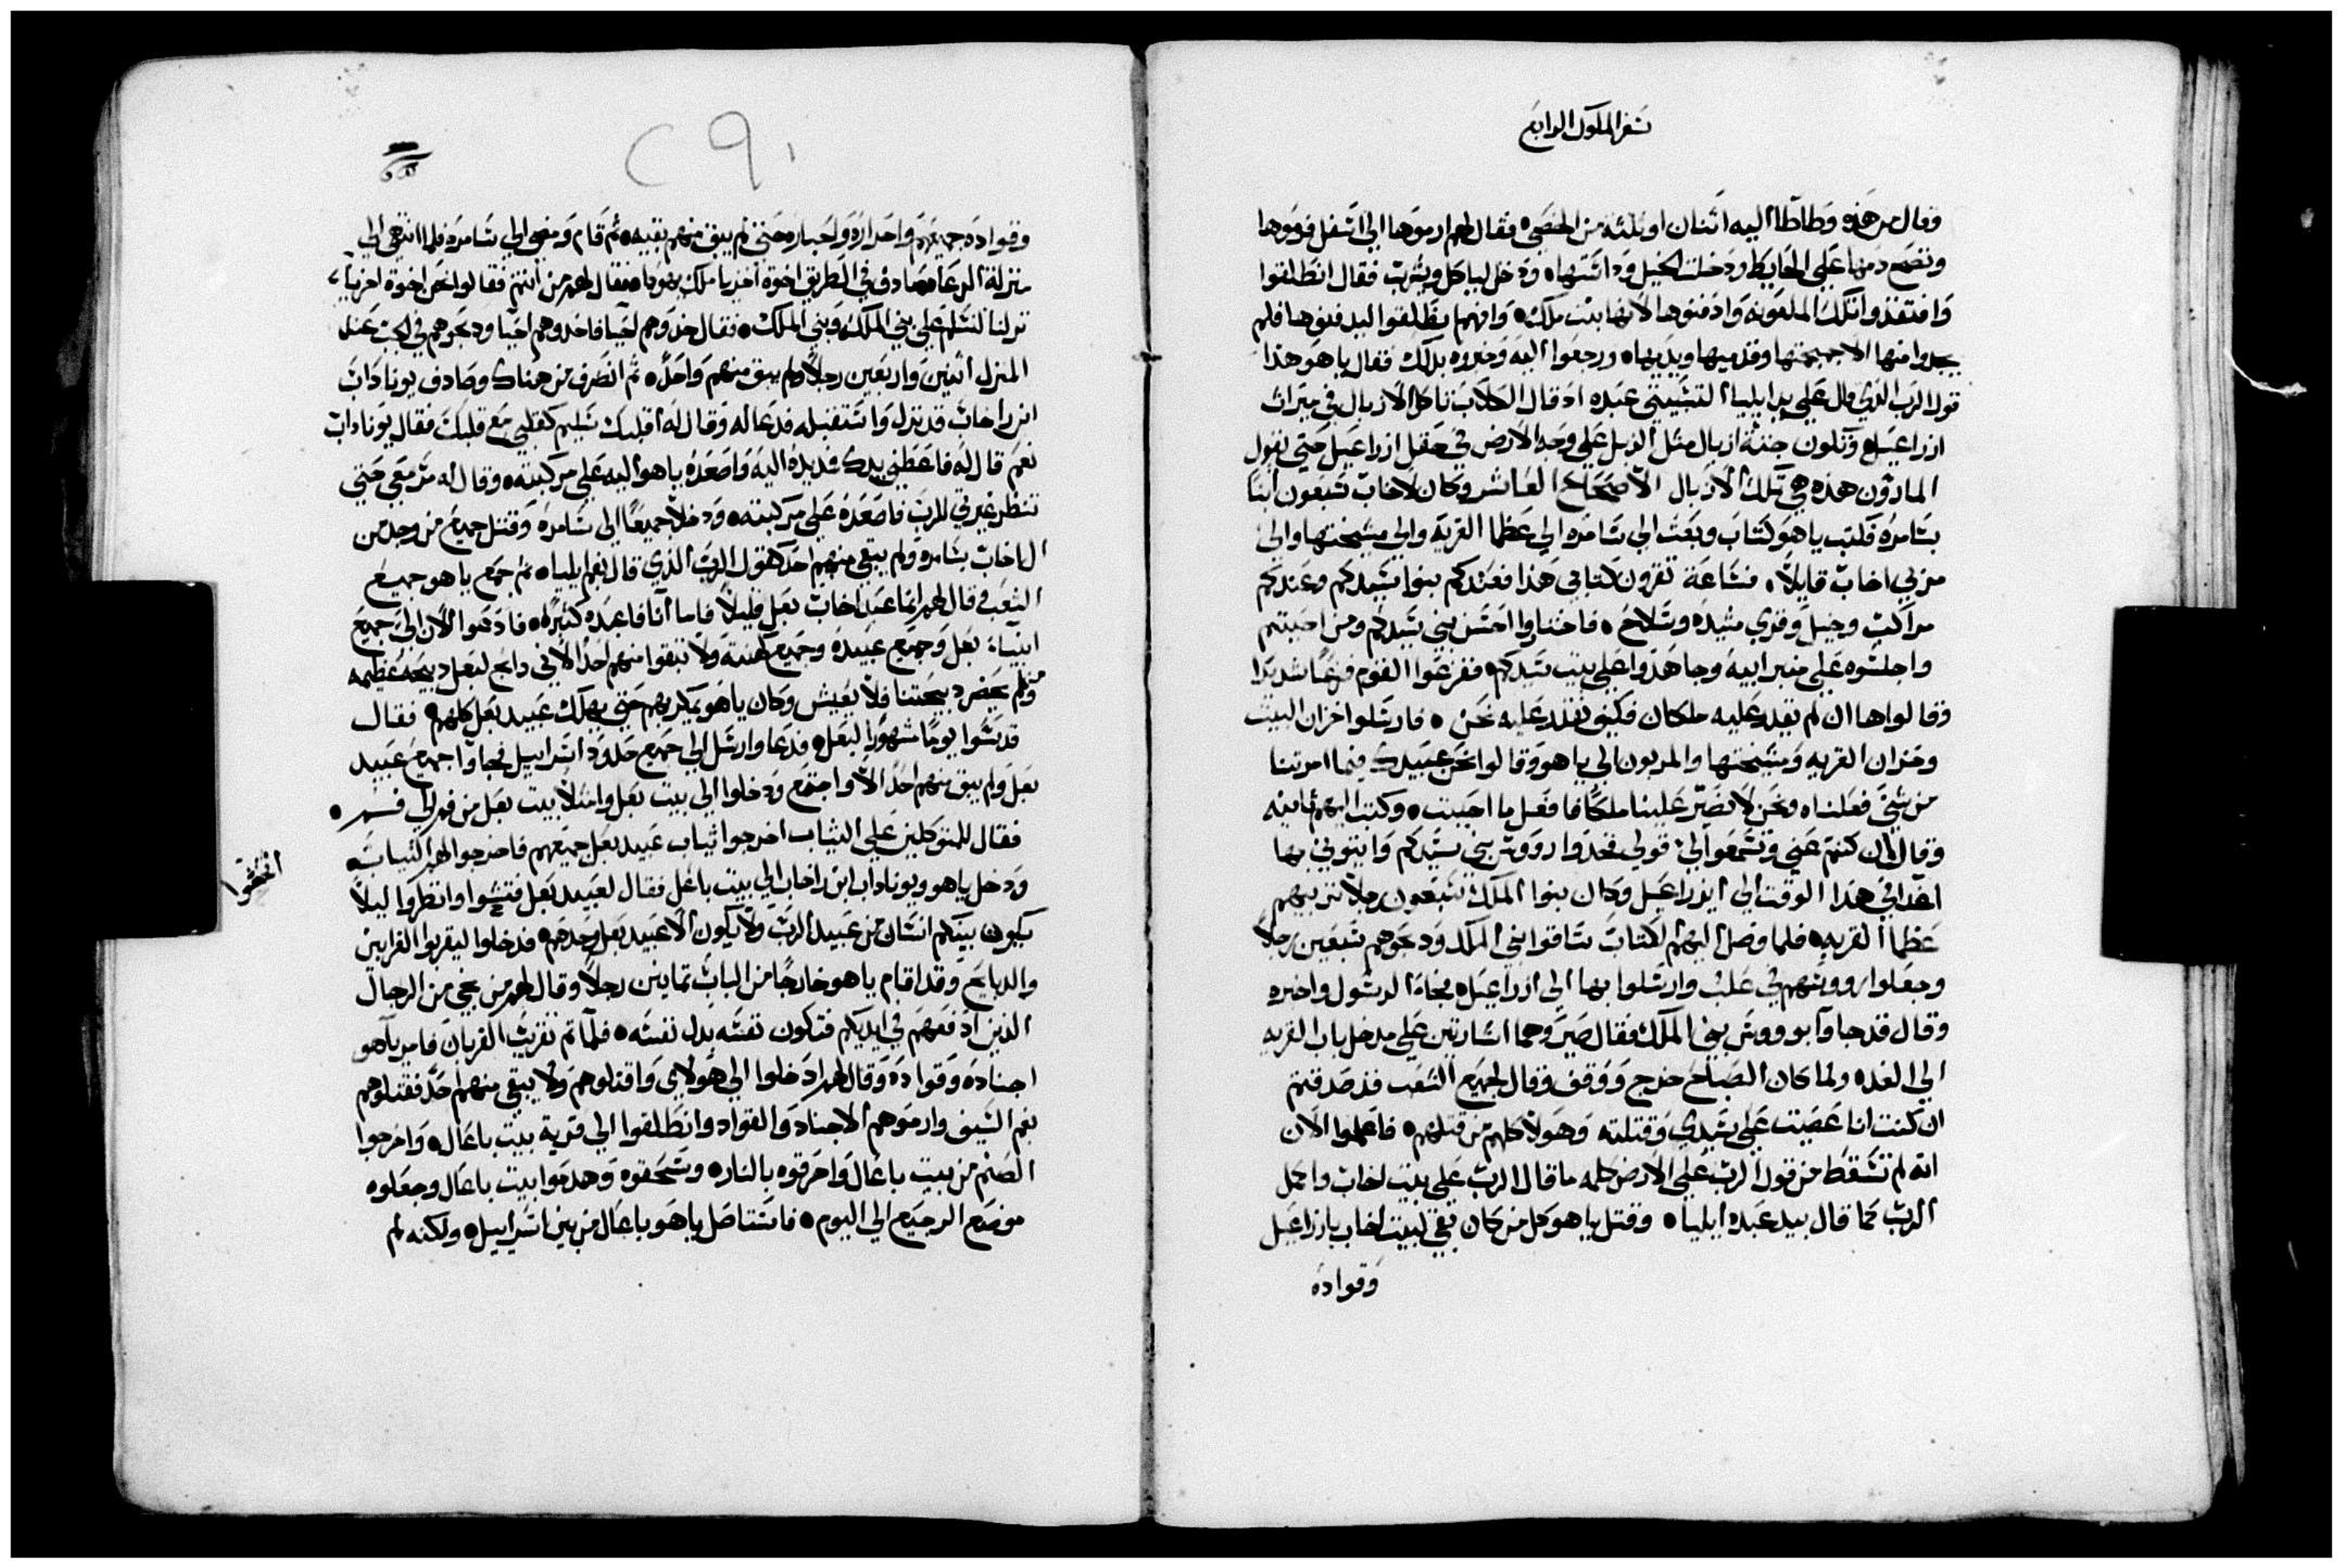 سفر الملوك الرابع
وقال من هذه وطاطا اليه اثنان او ثلثه من الخصي فقال لهم ارموها الي اسفل فرموها
ونضح دمها علي الحايط ودخلت الخيل وداستها ودخل لياكل ويشرب فقال انطلقوا
وافتقدوا تلك الملعونه وادفنوها لانها بنت ملك وانهم انطلقوا ليدفنوها فلم
يجدوا منها الا جمجمتها وقدميها ويديها ورجعوا اليه وخبروه بذلك فقال ياهو هذا
قول الرب الذي قال علي يد ايليا التشبيتي عبده اذ قال الكلاب تاكل الازبال في ميراث
ازراعيل وتكون جثة ازبال مثل الزبل علي وجه الارض في حقل ازراعيل حتي يقول
المارون هذه هي تلك الازبال الاصحاح العاشر وكان لاخاب سبعون ابنا
بسامره فكتب ياهو كتاب وبعث الي سامره الي عظما القريه والي مشيختها والي
مربي اخاب قايلا ساعة تقرون كتابي هذا فعندكم بنوا سيدكم وعندكم
مراكب وخيل وقري مشيده وسلاح فاختاروا احسن بني سيدكم ومن احببتم
واجلسوه علي منبر ابيه وجاهدوا علي بيت سيدكم ففزعوا القوم فزعا شديدا
وقالوا ها ان لم يقدر عليه ملكان فكيف نقدر عليه نحن فارسلوا خزان البيت
وخزان القريه ومشيختها والمربون الي ياهو وقالوا نحن عبيدك فيما امرتنا
من شي فعلناه ونحن لا نصير علينا ملكا فافعل ما احببت وكتب اليهم ثانيه
وقال ان كنتم عني وتسمعوا لي قولي فخدوا رووس بني سيدكم وايتوني بها
اغدا في هذا الوقت الي ايزراعيل وكان بنوا الملك سبعون رجلا تربيهم
عظما القريه فلما وصل اليهم الكتاب ساقوا بني الملك ودبحوهم سبعين رجلا
وجعلوا رووسهم في علب وارسلوا بها الي ازراعيل فجاء الرسول واخبره
وقال قد جاوا برووس بني الملك فقال صيروهما اساريتين علي مدخل باب القريه
الي الغده ولما كان الصباح خرج ووقف وقال لجميع الشعب قد صدقتم
ان كنت انا عصيت علي سيدي وقتلته وهولا كلهم من قتلهم فاعلموا الان
انه لم تسقط من قول الرب علي الارض كلمه ما قال الرب علي بيت اخاب واكمل
الرب كما قال بيد عبده ايليا وقتل ياهو كل من كان بقي لبيت اخاب بازراعيل
وقواده
٢٩١
وقواده جميعهم واحداره واحباره حتي لم يبق منهم بقيه ثم قام ومضي الي سامره فلما انتهي الي
منزلة الرعاه صادف في الطريق اخوة احزيا ملك يهودا فقال لهم من انتم فقالوا نحن اخوة احزيا
نزلنا لنسلم علي بني الملكه وبني الملك فقال خدوهم احيا فاخدوهم احيا ودبحوهم في الجب عند
المنزل اثنين واربعين رجلا ولم يبق منهم واحد ثم انصرف من هناك وصادف يوناداب
ابن راخاب قد نزل واستقبله فدعا له وقال له اقلبك سليم كقلبي مع قلبك فقال يوناداب
نعم قال له فاعطني يدك فمد يده اليه واصعده ياهو اليه علي مركبته وقال له مر معي حتي
تنظر غيرتي للرب فاصعده علي مركبته ودخلا جميعا الي سامره وقتل جميع من وجد من
ال اخاب بسامره ولم يبقي منهم احد كقول الرب الذي قال بفم ايليا ثم جمع ياهو جميع
الشعب فقال لهم انما عبد اخاب بعل قليلا فاما انا فاعبده كثيرا فادعوا الان الي جميع
انبياء بعل وجميع عبيده وجميع كهنته ولا تبقوا منهم احد لاني دابح لبعل دبيحه عظيمه
ومن لم يحضر دبيحتنا فلا يعيش وكان ياهو يمكر بهم حتي يهلك عبيد بعل كلهم فقال
قدسوا يوما مشهورا لبعل فدعا وارسل الي جميع حدود اسراييل فجاوا جميع عبيد
بعل ولم يبق منهم احد الا واجتمع ودخلوا الي بيت بعل وامتلا بيت بعل من فم الي فم
فقال للمتوكلين علي الثياب اخرجوا ثياب عبيد بعل جميعهم فاخرجوا لهم الثياب
ودخل ياهو ويوناداب ابن راخاب الي بيت باعل فقال لعبيد بعل فتشوا وانظروا ليلا
يكون بينكم انسان من عبيد الرب ولا يكون الا عبيد بعل وحدهم فدخلوا ليقربوا القرابين
والدبايح وقد اقام ياهو خارجا من الباب تمانين رجلا وقال لهم من نجي من الرجال
الذين ادفعهم في ايديكم فتكون نفسه بدل نفسه فلما تم تقريب القربان فامر ياهو
اجناده وقواده وقال لهم ادخلوا الي هولاي واقتلوهم ولا يبقي منهم احد فقتلوهم
بفم السيف وارموهم الاجناد والقواد وانطلقوا الي قرية بيت باعال واخرجوا
الصنم من بيت باعال واحرقوه بالنار وسحقوه وهدموا بيت باعال وجعلوه
موضع الرجيع الي اليوم فاستاصل ياهو باعال من بين اسراييل ولكنه لم